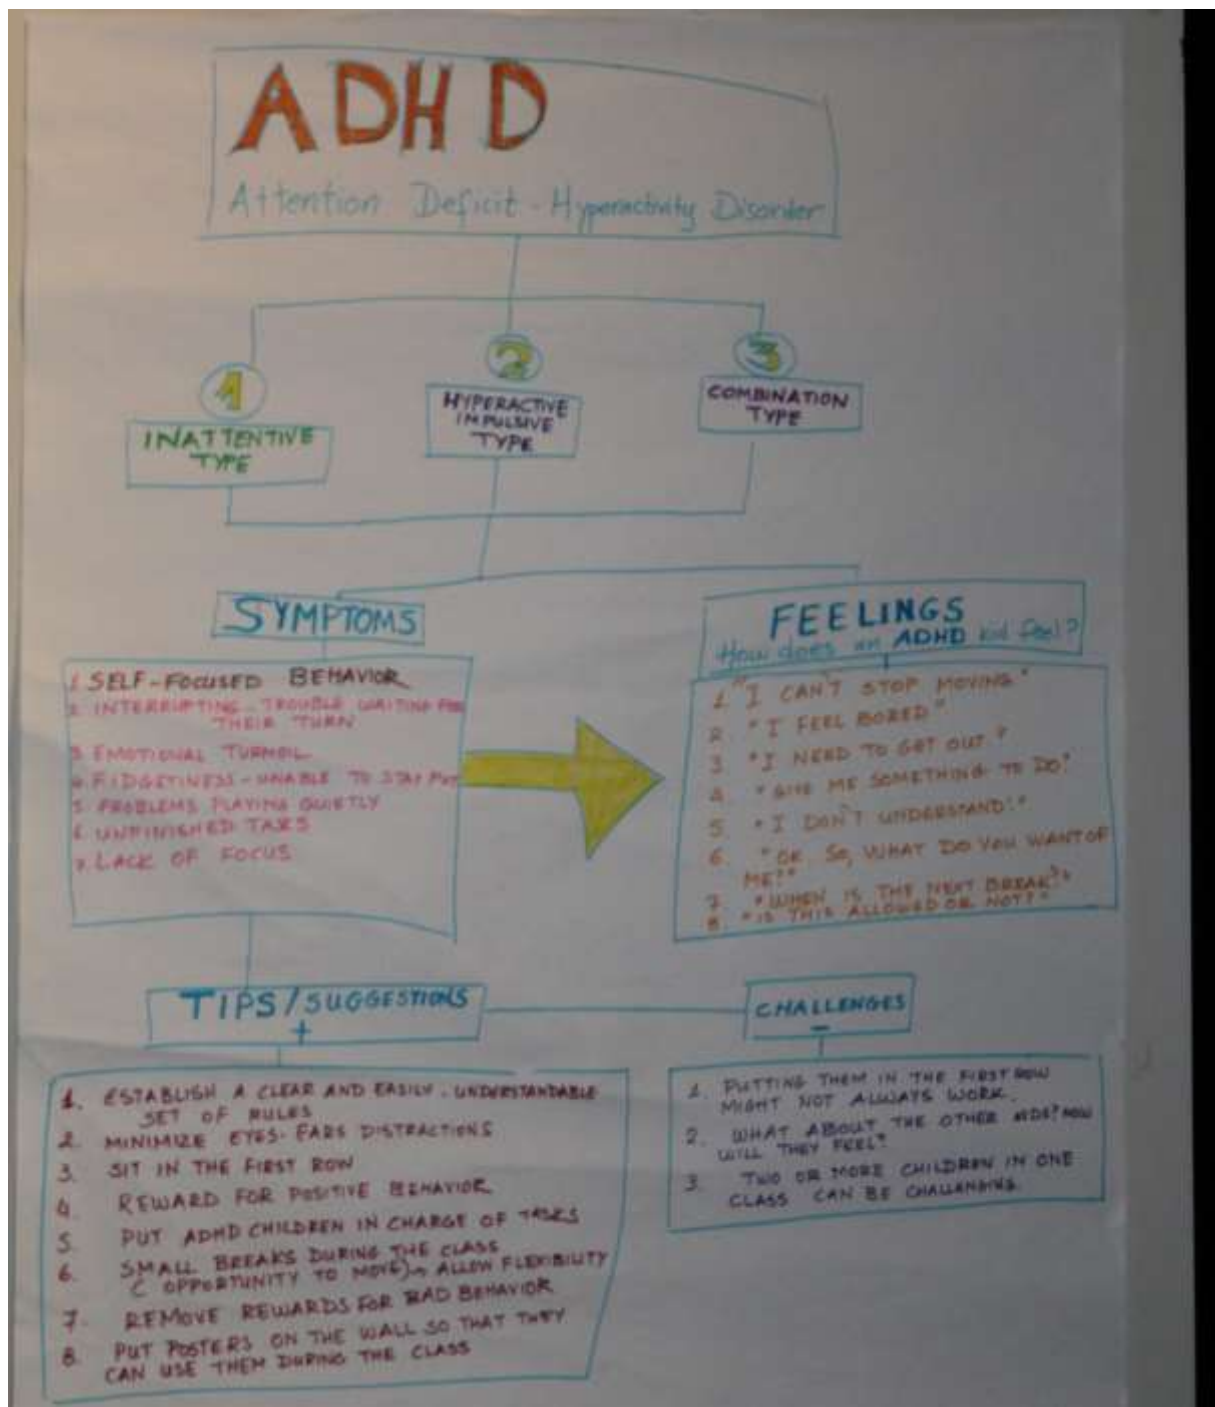 ADHD
Attention Deficit - Hyperactivity Disorder
1
2
3
INATTENTIVE
TYPE
HYPERACTIVE
IMPULSIVE
TYPE
COMBINATION
TYPE
SYMPTOMS
1 SELF-FOCUSED BEHAVIOR
2 INTERRUPTING - TROUBLE WAITING FOR
THEIR TURN
3 EMOTIONAL TURMOIL
4. FIDGETINESS - UNABLE TO STAY PUT
5 PROBLEMS PLAYING QUIETLY
6 UNFINISHED TAKS
7. LACK OF FOCUS
FEELINGS
How does an ADHD kid feel?
1 "I CAN'T STOP MOVING"
2. "I FEEL BORED"
3. "I NEED TO GET OUT"
4. "GIVE ME SOMETHING TO DO!"
5. "I DON'T UNDERSTAND!"
6. "OK SO, WHAT DO YOU WANT OF
ME?"
7. "WHEN IS THE NEXT BREAK?"
8. "IS THIS ALLOWED OR NOT?"
TIPS/SUGGESTIONS
+
1. ESTABLISH A CLEAR AND EASILY-UNDERSTANDABLE
SET OF RULES
2. MINIMIZE EYES-EARS DISTRACTIONS
3. SIT IN THE FIRST ROW
4. REWARD FOR POSITIVE BEHAVIOR
5. PUT ADHD CHILDREN IN CHARGE OF TASKS
6. SMALL BREAKS DURING THE CLASS
( OPPORTUNITY TO MOVE) → ALLOW FLEXIBILITY
7. REMOVE REWARDS FOR BAD BEHAVIOR
8. PUT POSTERS ON THE WALL SO THAT THEY
CAN USE THEM DURING THE CLASS
CHALLENGES
-
1. PUTTING THEM IN THE FIRST ROW
MIGHT NOT ALWAYS WORK.
2. WHAT ABOUT THE OTHER KIDS? HOW
WILL THEY FEEL?
3. TWO OR MORE CHILDREN IN ONE
CLASS CAN BE CHALLENGING